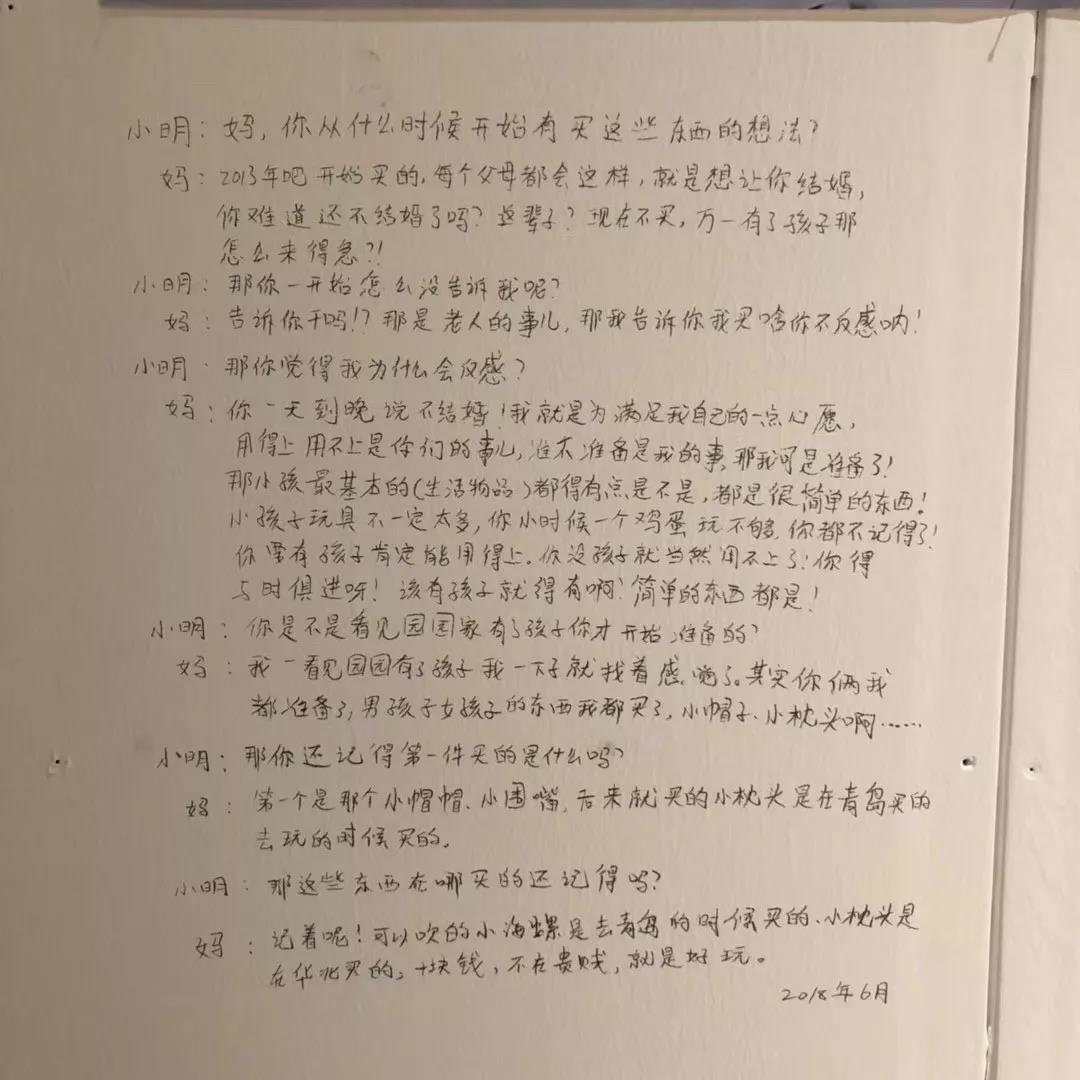 小明：妈，你从什么时候开始有买这些东西的想法？
妈：2013年吧开始买的，每个父母都会这样，就是想让你结婚，
你难道还不结婚了吗？这辈子？现在不买，万一有了孩子那
怎么来得急？！
小明：那你一开始怎么没告诉我呢？
妈：告诉你干吗！？那是老人的事儿，那我告诉你我买啥你不反感呐！
小明：那你觉得我为什么会反感？
妈：你一天到晚说不结婚！我就是为满足我自己的一点心愿，
用得上用不上是你们的事儿，准不准备是我的事，那我可是准备了！
那小孩最基本的（生活物品）都得有点是不是，都是很简单的东西！
小孩子玩具不一定太多，你小时候一个鸡蛋玩不够，你都不记得了！
你要有孩子肯定能用得上。你没孩子就当然用不上了！你得
与时俱进呀！该有孩子就得有啊！简单的东西都是！
小明：你是不是看见园园家有了孩子你才开始准备的？
妈：我一看见园园有了孩子我一下子就找着感觉了。其实你俩我
都准备了，男孩子女孩子的东西我都买了，小帽子、小枕头啊……
小明：那你还记得第一件买的是什么吗？
妈：第一个是那个小帽帽、小围嘴，后来就买的小枕头是在青岛买的
去玩的时候买的。
小明：那这些东西在哪买的还记得吗？
妈：记着呢！可以吹的小海螺是去青岛的时候买的、小枕头是
在华北买的，十块钱，不在贵贱，就是好玩。
2018年6月